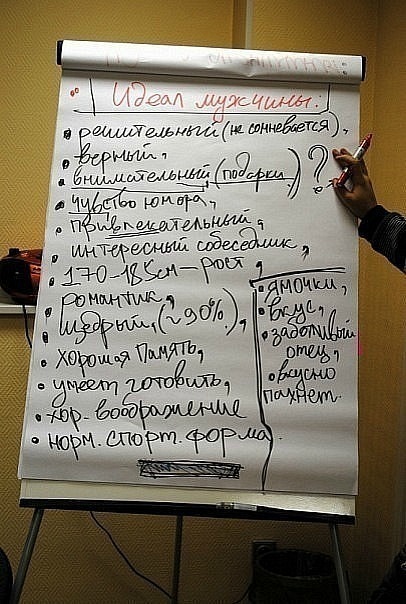 Идеал мужчины:
решительный (не сомневается),
верный,
внимательный, (подарки) ?
чувство юмора,
привлекательный,
интересный собеседник,
170-185см - рост,
романтик,
щедрый, (~90%),
хорошая память,
умеет готовить,
хор. воображение
норм. спорт. форма.
ямочки,
вкус,
заботливый
отец,
вкусно
пахнет.